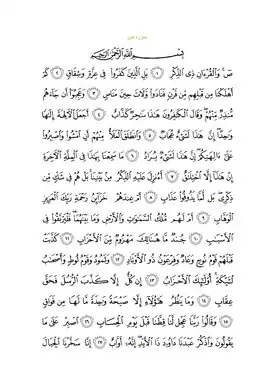 بِسْمِ ٱللَّهِ ٱلرَّحْمَٰنِ ٱلرَّحِيمِ
صٓ وَٱلْقُرْءَانِ ذِى ٱلذِّكْرِ ١ بَلِ ٱلَّذِينَ كَفَرُوا۟ فِى عِزَّةٍ وَشِقَاقٍ ٢ كَمْ
أَهْلَكْنَا مِن قَبْلِهِم مِّن قَرْنٍ فَنَادَوا۟ وَّلَاتَ حِينَ مَنَاصٍ ٣ وَعَجِبُوٓا۟ أَن جَآءَهُم
مُّنذِرٌ مِّنْهُمْ ۖ وَقَالَ ٱلْكَٰفِرُونَ هَٰذَا سَٰحِرٌ كَذَّابٌ ٤ أَجَعَلَ ٱلْءَالِهَةَ إِلَٰهًا
وَٰحِدًا ۖ إِنَّ هَٰذَا لَشَىْءٌ عُجَابٌ ٥ وَٱنطَلَقَ ٱلْمَلَأُ مِنْهُمْ أَنِ ٱمْشُوا۟ وَٱصْبِرُوا۟
عَلَىٰٓ ءَالِهَتِكُمْ ۖ إِنَّ هَٰذَا لَشَىْءٌ يُرَادُ ٦ مَا سَمِعْنَا بِهَٰذَا فِى ٱلْمِلَّةِ ٱلْءَاخِرَةِ
إِنْ هَٰذَآ إِلَّا ٱخْتِلَٰقٌ ٧ أَءُنزِلَ عَلَيْهِ ٱلذِّكْرُ مِنۢ بَيْنِنَا ۚ بَلْ هُمْ فِى شَكٍّ مِّن
ذِكْرِى ۖ بَل لَّمَّا يَذُوقُوا۟ عَذَابِ ٨ أَمْ عِندَهُمْ خَزَآئِنُ رَحْمَةِ رَبِّكَ ٱلْعَزِيزِ
ٱلْوَهَّابِ ٩ أَمْ لَهُم مُّلْكُ ٱلسَّمَٰوَٰتِ وَٱلْأَرْضِ وَمَا بَيْنَهُمَا ۖ فَلْيَرْتَقُوا۟ فِى
ٱلْأَسْبَٰبِ ١٠ جُندٌ مَّا هُنَالِكَ مَهْزُومٌ مِّنَ ٱلْأَحْزَابِ ١١ كَذَّبَتْ
قَبْلَهُمْ قَوْمُ نُوحٍ وَعَادٌ وَفِرْعَوْنُ ذُو ٱلْأَوْتَادِ ١٢ وَثَمُودُ وَقَوْمُ لُوطٍ وَأَصْحَٰبُ
لْـَٔيْكَةِ ۚ أُو۟لَٰٓئِكَ ٱلْأَحْزَابُ ١٣ إِن كُلٌّ إِلَّا كَذَّبَ ٱلرُّسُلَ فَحَقَّ
عِقَابِ ١٤ وَمَا يَنظُرُ هَٰٓؤُلَآءِ إِلَّا صَيْحَةً وَٰحِدَةً مَّا لَهَا مِن فَوَاقٍ
١٥ وَقَالُوا۟ رَبَّنَا عَجِّل لَّنَا قِطَّنَا قَبْلَ يَوْمِ ٱلْحِسَابِ ١٦ ٱصْبِرْ عَلَىٰ مَا
يَقُولُونَ وَٱذْكُرْ عَبْدَنَا دَاوُۥدَ ذَا ٱلْأَيْدِ ۖ إِنَّهُۥٓ أَوَّابٌ ١٧ إِنَّا سَخَّرْنَا ٱلْجِبَالَ